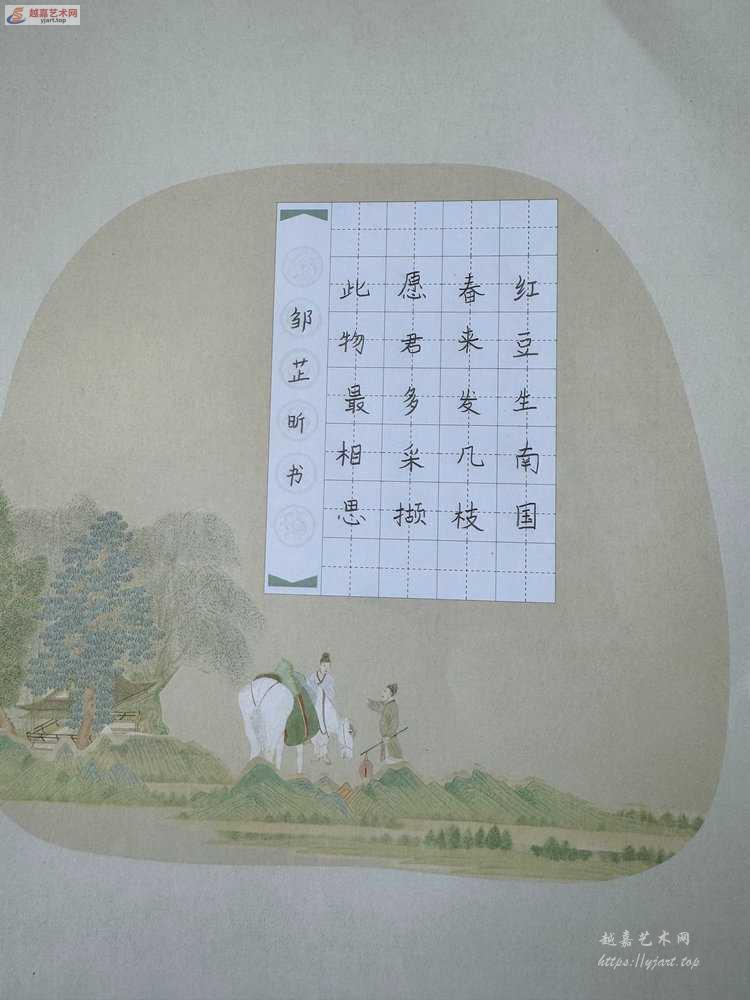 越嘉艺术网
yjart.top
红豆生南国
春来发凡枝
愿君多采撷
此物最相思
邹芷昕书
越嘉艺术网
https://yjart.top